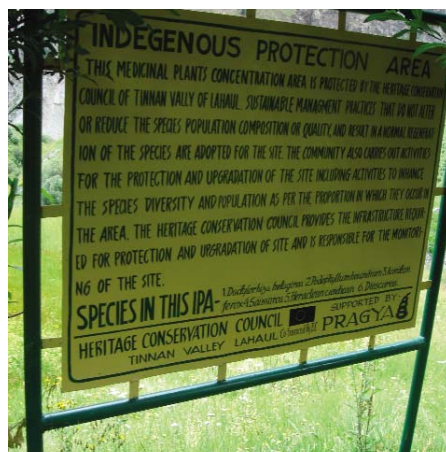 INDEGENOUS PROTECTION AREA
THIS MEDICINAL PLANTS CONCENTRATION AREA IS PROTECTED BY THE HERITAGE CONSERVATION
COUNCIL OF TINNAN VALLY OF LAHAUL. SUSTAINABLE MANAGMENT PRACTICES THAT DO NOT ALTER
OR REDUCE THE SPECIES POPULATION COMPOSITION OR QUALITY, AND RESULT IN A NORMAL REGENERAT
ION OF THE SPECIES ARE ADOPTED FOR THE SITE. THE COMMUNITY ALSO CARRIES OUT ACTIVITIES
FOR THE PROTECTION AND UPGRADATION OF THE SITE INCLUDING ACTIVITIES TO INHANCE
THE SPECIES DIVERSITY AND POPULATION AS PER THE PROPORTION IN WHICH THEY OCCUR IN
THE AREA. THE HERITAGE CONSERVATION COUNCIL PROVIDES THE INFRASTRUCTURE REQUIR-
ED FOR PROTECTION AND UPGRADATION OF SITE AND IS RESPONSIBLE FOR THE MONITORI
NG OF THE SITE.
SPECIES IN THIS IPA-
HERITAGE CONSERVATION COUNCIL
SUPPORTED BY
TINNAN VALLEY LAHAUL
PRAGYA